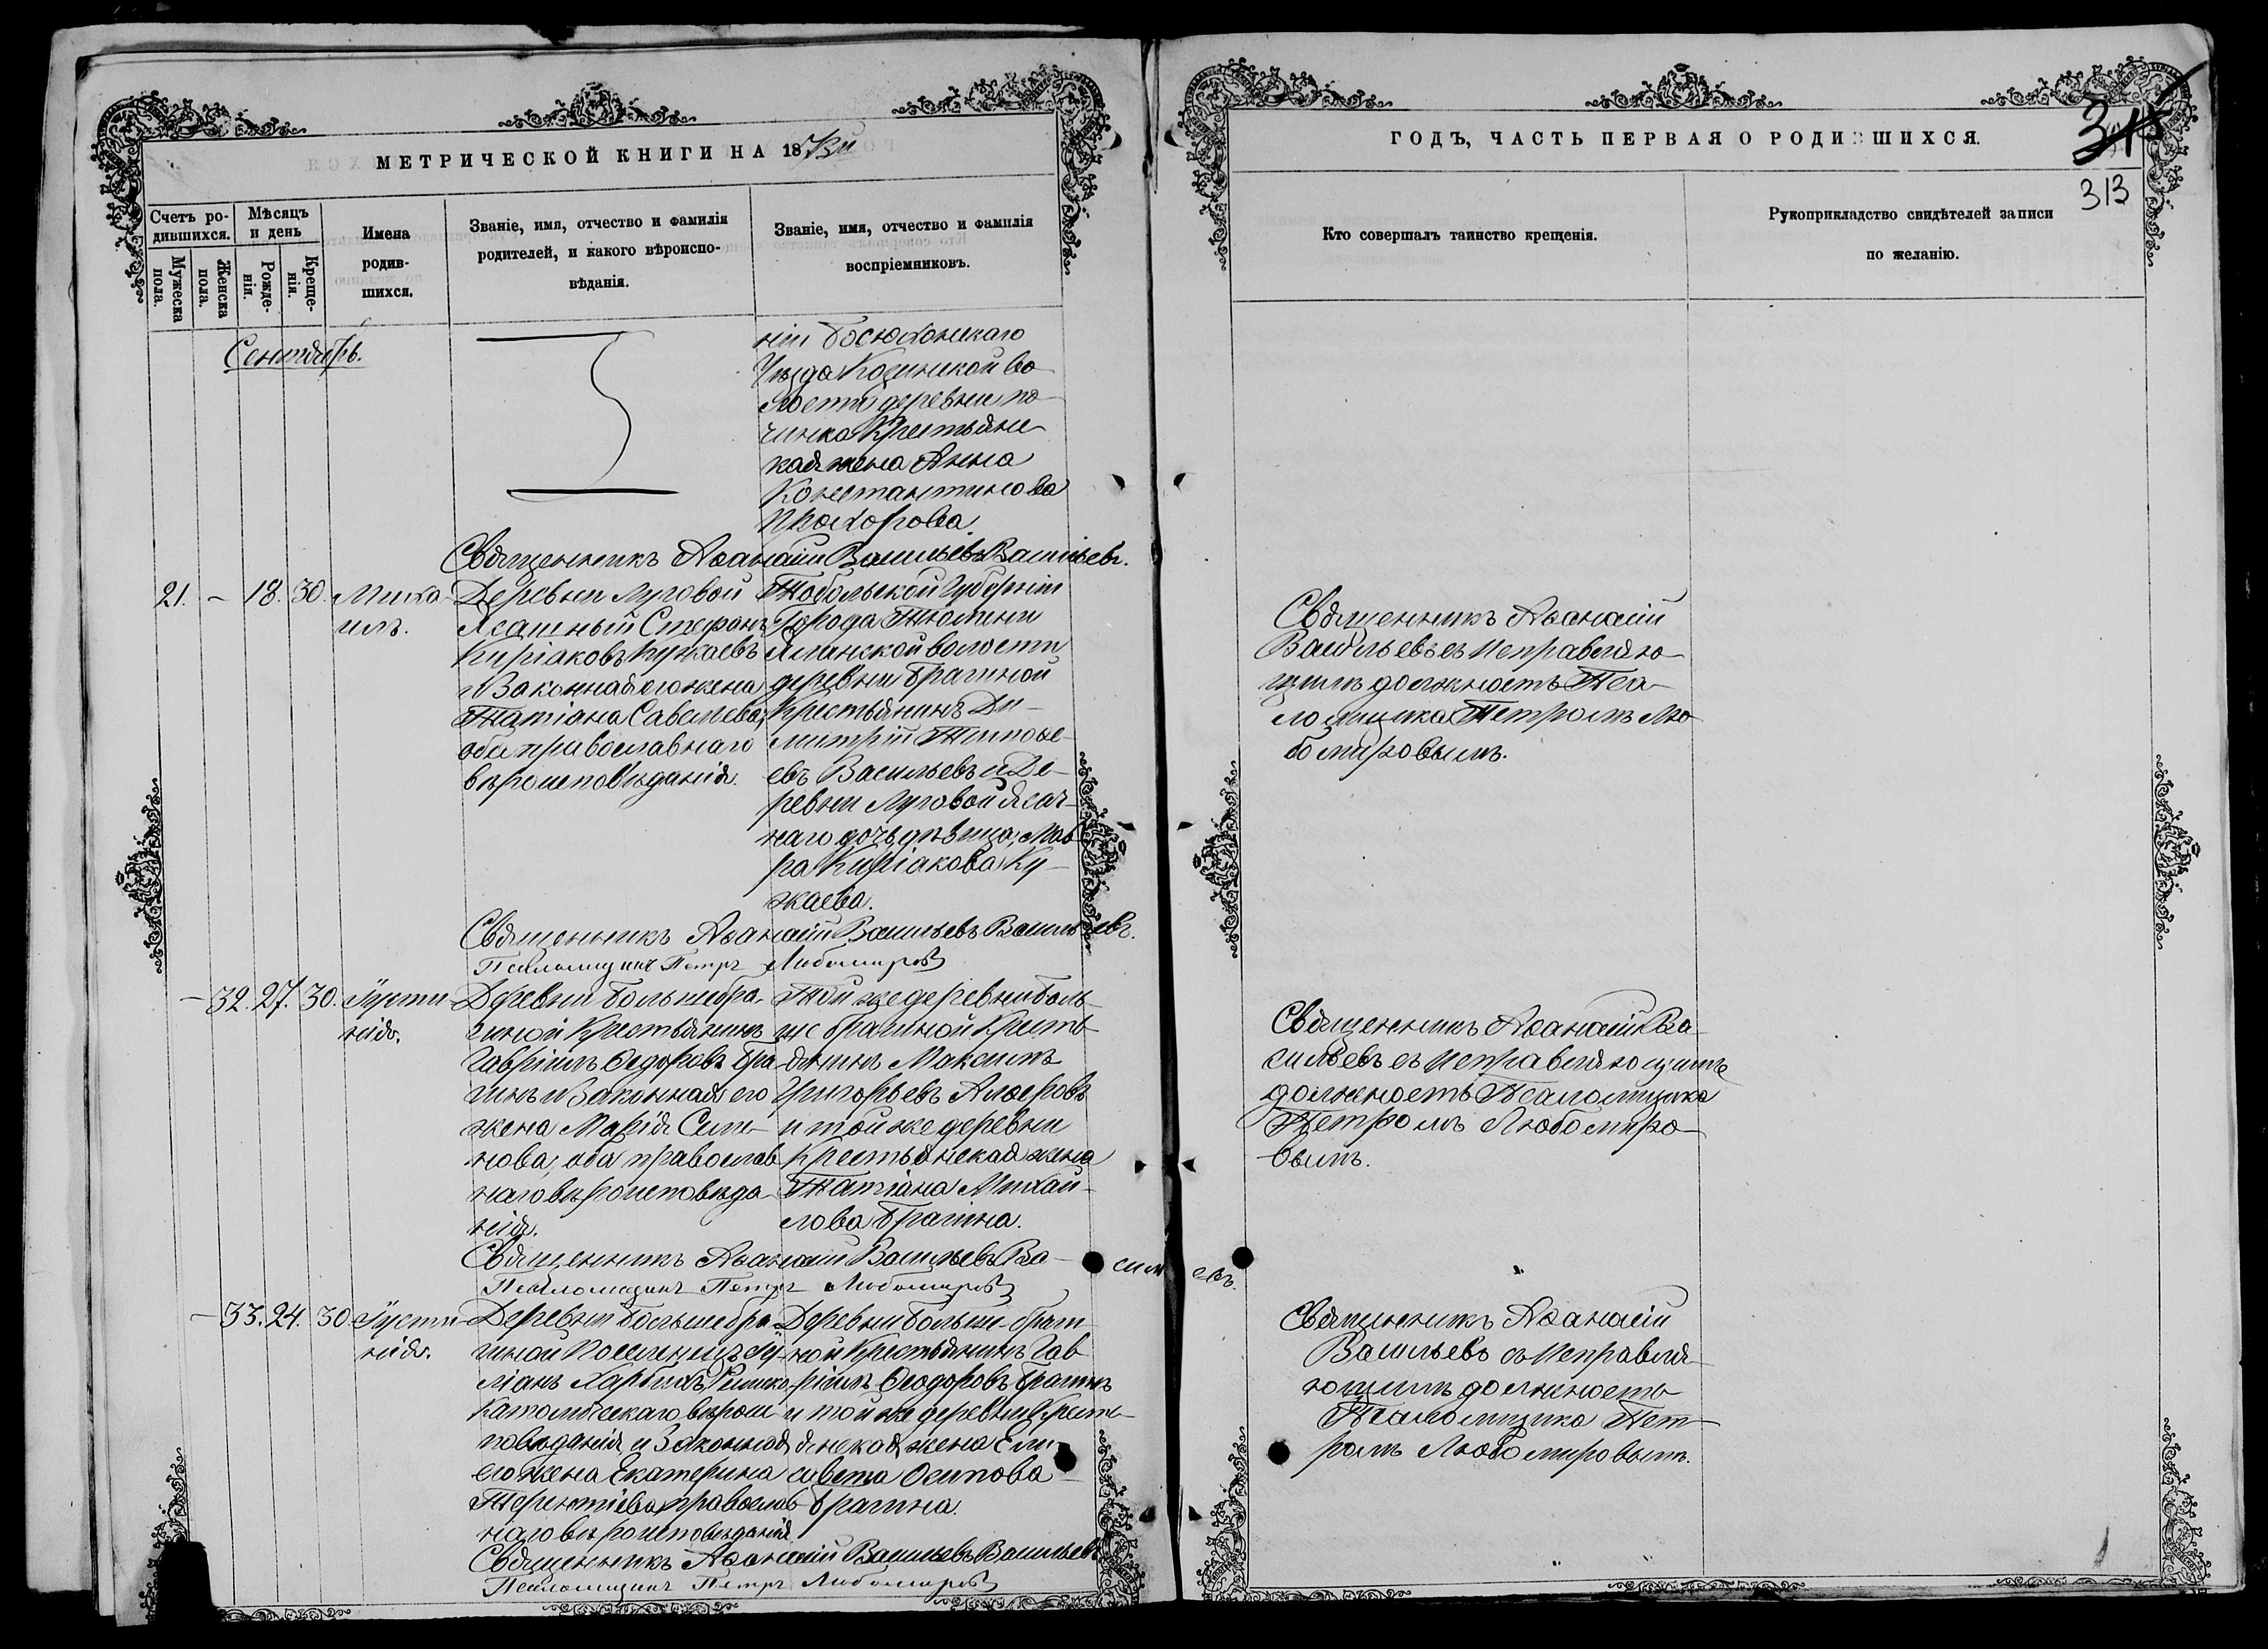 МЕТРИЧЕСКОЙ КНИГИ НА 18
Счетъ ро-
дившихся.
Мужеска
пола.
Женска
пола.
Мѣсяцъ
и день
Рожде-
нія.
Креще-
нія.
Имена
родив-
шихся.
Званіе, имя, отчество и фамилія
родителей, и какого вѣроиспо-
вѣданія.
Званіе, имя, отчество и фамилія
воспріемниковъ.
Сентябрь.
ніи
Уѣзда во
лости деревни По
чинка Крестьянс
кая жена Анна
Константинова
Прохорова
Священникъ Аѳанасій Васильевъ Васильевъ.
21. – 18. 30.
Миха
илъ.
Деревни Луговой
Ясашный Стефанъ
Киріаковъ Кужаевъ
и Законная его жена
Татіана Савельева,
оба православнаго
вѣроисповѣданія.
Тобольской Губерніи
Города Тюмени
волости
деревни Брагиной
Крестьянинъ Ди
митрій
евъ Васильевъ и Де
ревни Луговой Ясач
наго дочь дѣвица, Мав
ра Киріакова Ку
жаева.
Священникъ Аѳанасій Васильевъ Васильевъ.
Псаломщикъ Петръ Любомировъ
– 32. 27. 30.
Густи
нія.
Деревни Большебра
гиной Крестьянинъ
Гавріилъ Ѳедоровъ Бра
гинъ и Законная его
жена Марія Сим
нова, оба православ
наго вѣроисповѣда
нія.
Той же деревни Боль
ше брагиной Кресть
янинъ Максимъ
Григорьевъ Алѳеровъ
и той же деревни
Крестьянская жена
Татіана Михай
лова Брагина.
Священникъ Аѳанасій Васильевъ Ва
сильевъ.
Псаломщикъ Петръ Любомировъ
– 33. 24. 30
Густи
нія.
Деревни Большебра
гиной Поселенецъ Іу
ліанъ
Католическаго вѣроис
повѣданія и Законная
его жена Екатерина
Терентіева, православ
наго вѣроисповѣданія
Деревни Больше браги
ной Крестьянинъ Гав
ріилъ Ѳеодоровъ Брагинъ
и той же деревни Кресть
янская жена Ели
савета Осипова
Брагина.
Священникъ Аѳанасій Васильевъ Васильевъ
Псаломщикъ Петръ Любомировъ
ГОДЪ, ЧАСТЬ ПЕРВАЯ О РОДИВШИХСЯ.
313
Кто совершалъ таинство крещенія.
Рукоприкладство свидѣтелей записи
по желанію.
Священникъ Аѳанасій
Васильевъ съ Исправляю
щимъ должность Пса
ломщика Петромъ Лю
бомировымъ.
Священникъ Аѳанасій Ва
сильевъ съ Исправляющимъ
должность Псаломщика
Петромъ Любомиро
вымъ.
Священникъ Аѳанасій
Васильевъ съ Исправля
ющимъ должность
Псаломщика Пет
ромъ Любомировымъ.